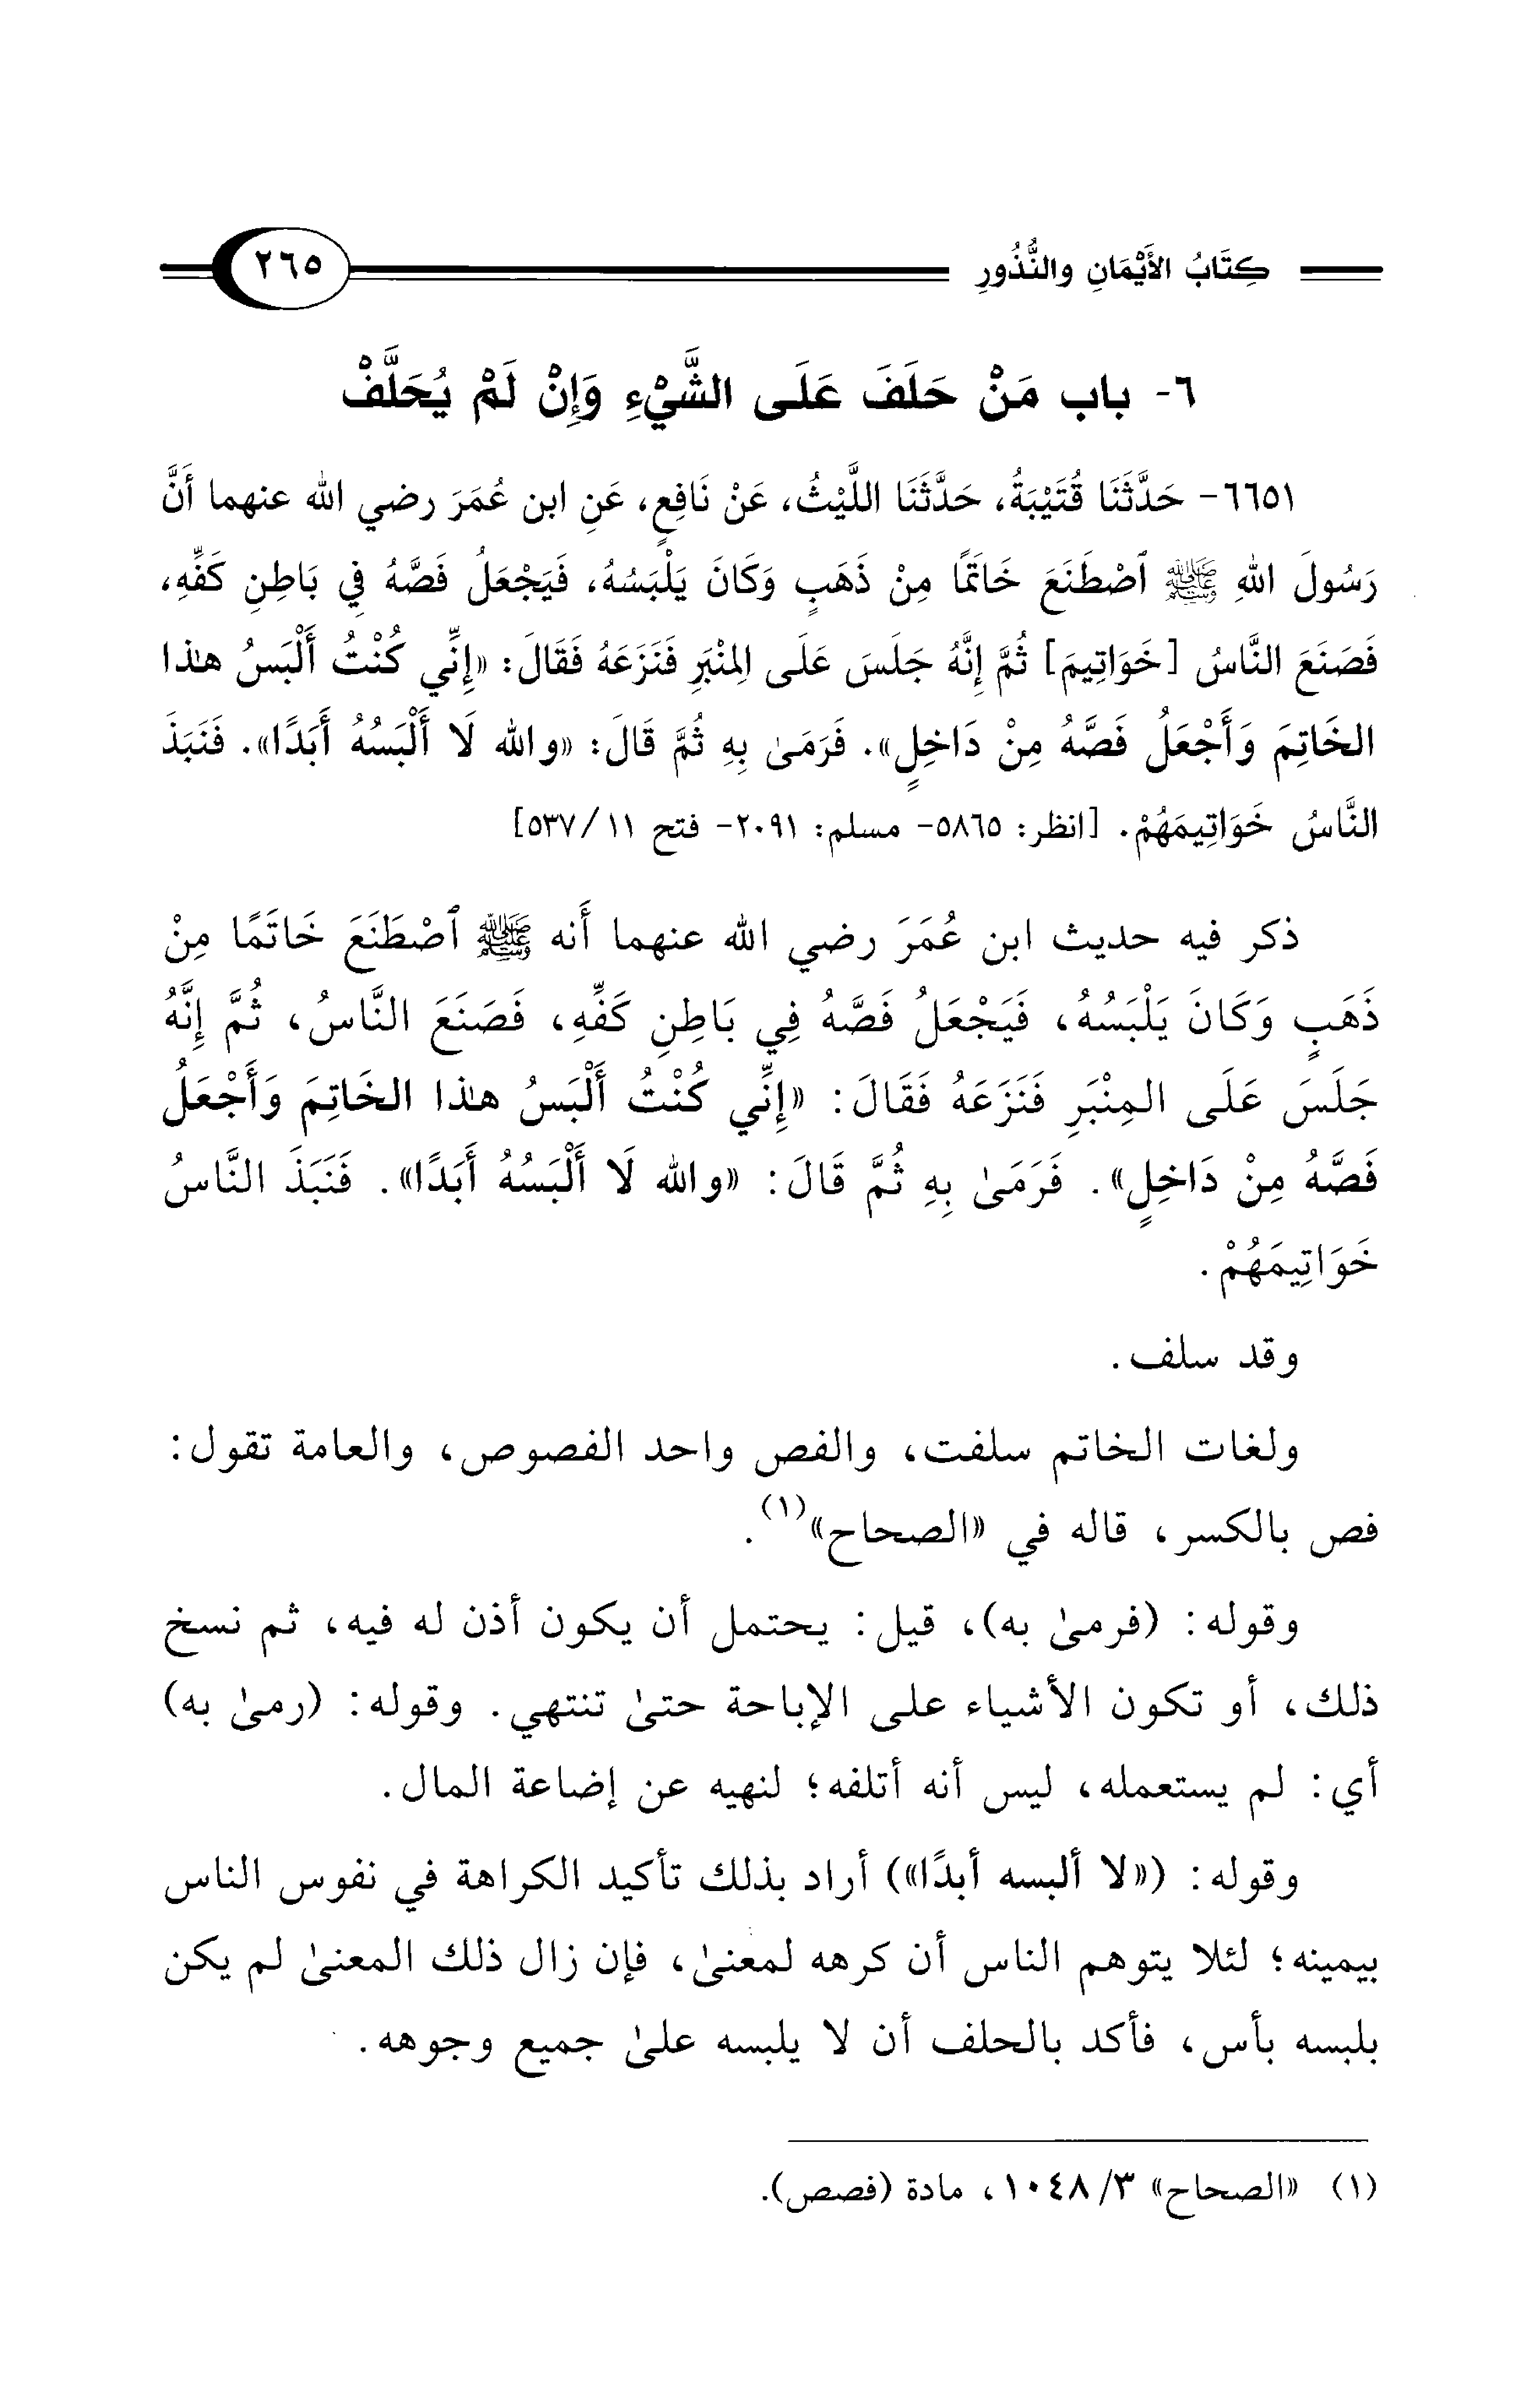 كِتَابُ الأَيْمَانِ والنُّذُورِ ٢٦٥
٦- باب مَنْ حَلَفَ عَلَى الشَّيْءِ وَإِنْ لَمْ يُحَلَّفْ
٦٦٥١- حَدَّثَنَا قُتَيْبَةُ، حَدَّثَنَا اللَّيْثُ، عَنْ نَافِعٍ، عَنِ ابن عُمَرَ رضي الله عنهما أَنَّ
رَسُولَ اللهِ ﷺ ٱصْطَنَعَ خَاتَمًا مِنْ ذَهَبٍ وَكَانَ يَلْبَسُهُ، فَيَجْعَلُ فَصَّهُ فِي بَاطِنِ كَفِّهِ،
فَصَنَعَ النَّاسُ [خَوَاتِيمَ] ثُمَّ إِنَّهُ جَلَسَ عَلَى المِنْبَرِ فَنَزَعَهُ فَقَالَ: «إِنِّي كُنْتُ أَلْبَسُ هذا
الخَاتِمَ وَأَجْعَلُ فَصَّهُ مِنْ دَاخِلٍ». فَرَمَىٰ بِهِ ثُمَّ قَالَ: «والله لَا أَلْبَسُهُ أَبَدًا». فَنَبَذَ
النَّاسُ خَوَاتِيمَهُمْ. [انظر: ٥٨٦٥- مسلم: ٢٠٩١- فتح ١١/ ٥٣٧]
ذكر فيه حديث ابن عُمَرَ رضي الله عنهما أَنه ﷺ ٱصْطَنَعَ خَاتَمًا مِنْ
ذَهَبٍ وَكَانَ يَلْبَسُهُ، فَيَجْعَلُ فَصَّهُ فِي بَاطِنِ كَفِّهِ، فَصَنَعَ النَّاسُ، ثُمَّ إِنَّهُ
جَلَسَ عَلَى المِنْبَرِ فَنَزَعَهُ فَقَالَ: «إِنِّي كُنْتُ أَلْبَسُ هذا الخَاتِمَ وَأَجْعَلُ
فَصَّهُ مِنْ دَاخِلٍ». فَرَمَىٰ بِهِ ثُمَّ قَالَ: «والله لَا أَلْبَسُهُ أَبَدًا». فَنَبَذَ النَّاسُ
خَوَاتِيمَهُمْ.
وقد سلف.
ولغات الخاتم سلفت، والفص واحد الفصوص، والعامة تقول:
فص بالكسر، قاله في «الصحاح»(١).
وقوله: (فرمىٰ به)، قيل: يحتمل أن يكون أذن له فيه، ثم نسخ
ذلك، أو تكون الأشياء على الإباحة حتىٰ تنتهي. وقوله: (رمىٰ به)
أي: لم يستعمله، ليس أنه أتلفه؛ لنهيه عن إضاعة المال.
وقوله: («لا ألبسه أبدًا») أراد بذلك تأكيد الكراهة في نفوس الناس
بيمينه؛ لئلا يتوهم الناس أن كرهه لمعنىٰ، فإن زال ذلك المعنىٰ لم يكن
بلبسه بأس، فأكد بالحلف أن لا يلبسه علىٰ جميع وجوهه.
(١) «الصحاح» ٣/ ١٠٤٨، مادة (فصص).